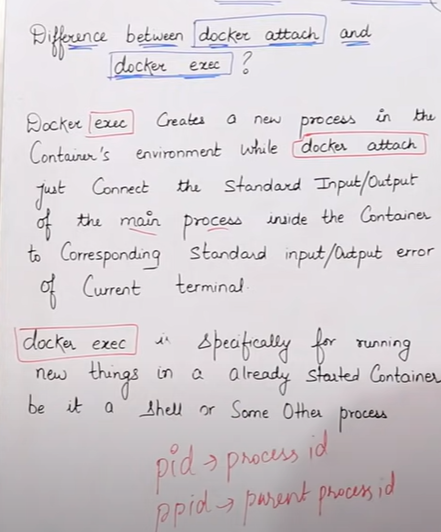 Difference between docker attach and
docker exec ?
Docker exec Creates a new process in the
Container's environment while docker attach
just Connect the Standard Input/Output
of the main process inside the Container
to Corresponding Standard input/Output error
of Current terminal.
docker exec is specifically for running
new things in a already started Container
be it a shell or Some Other process
pid → process id
ppid → parent process id